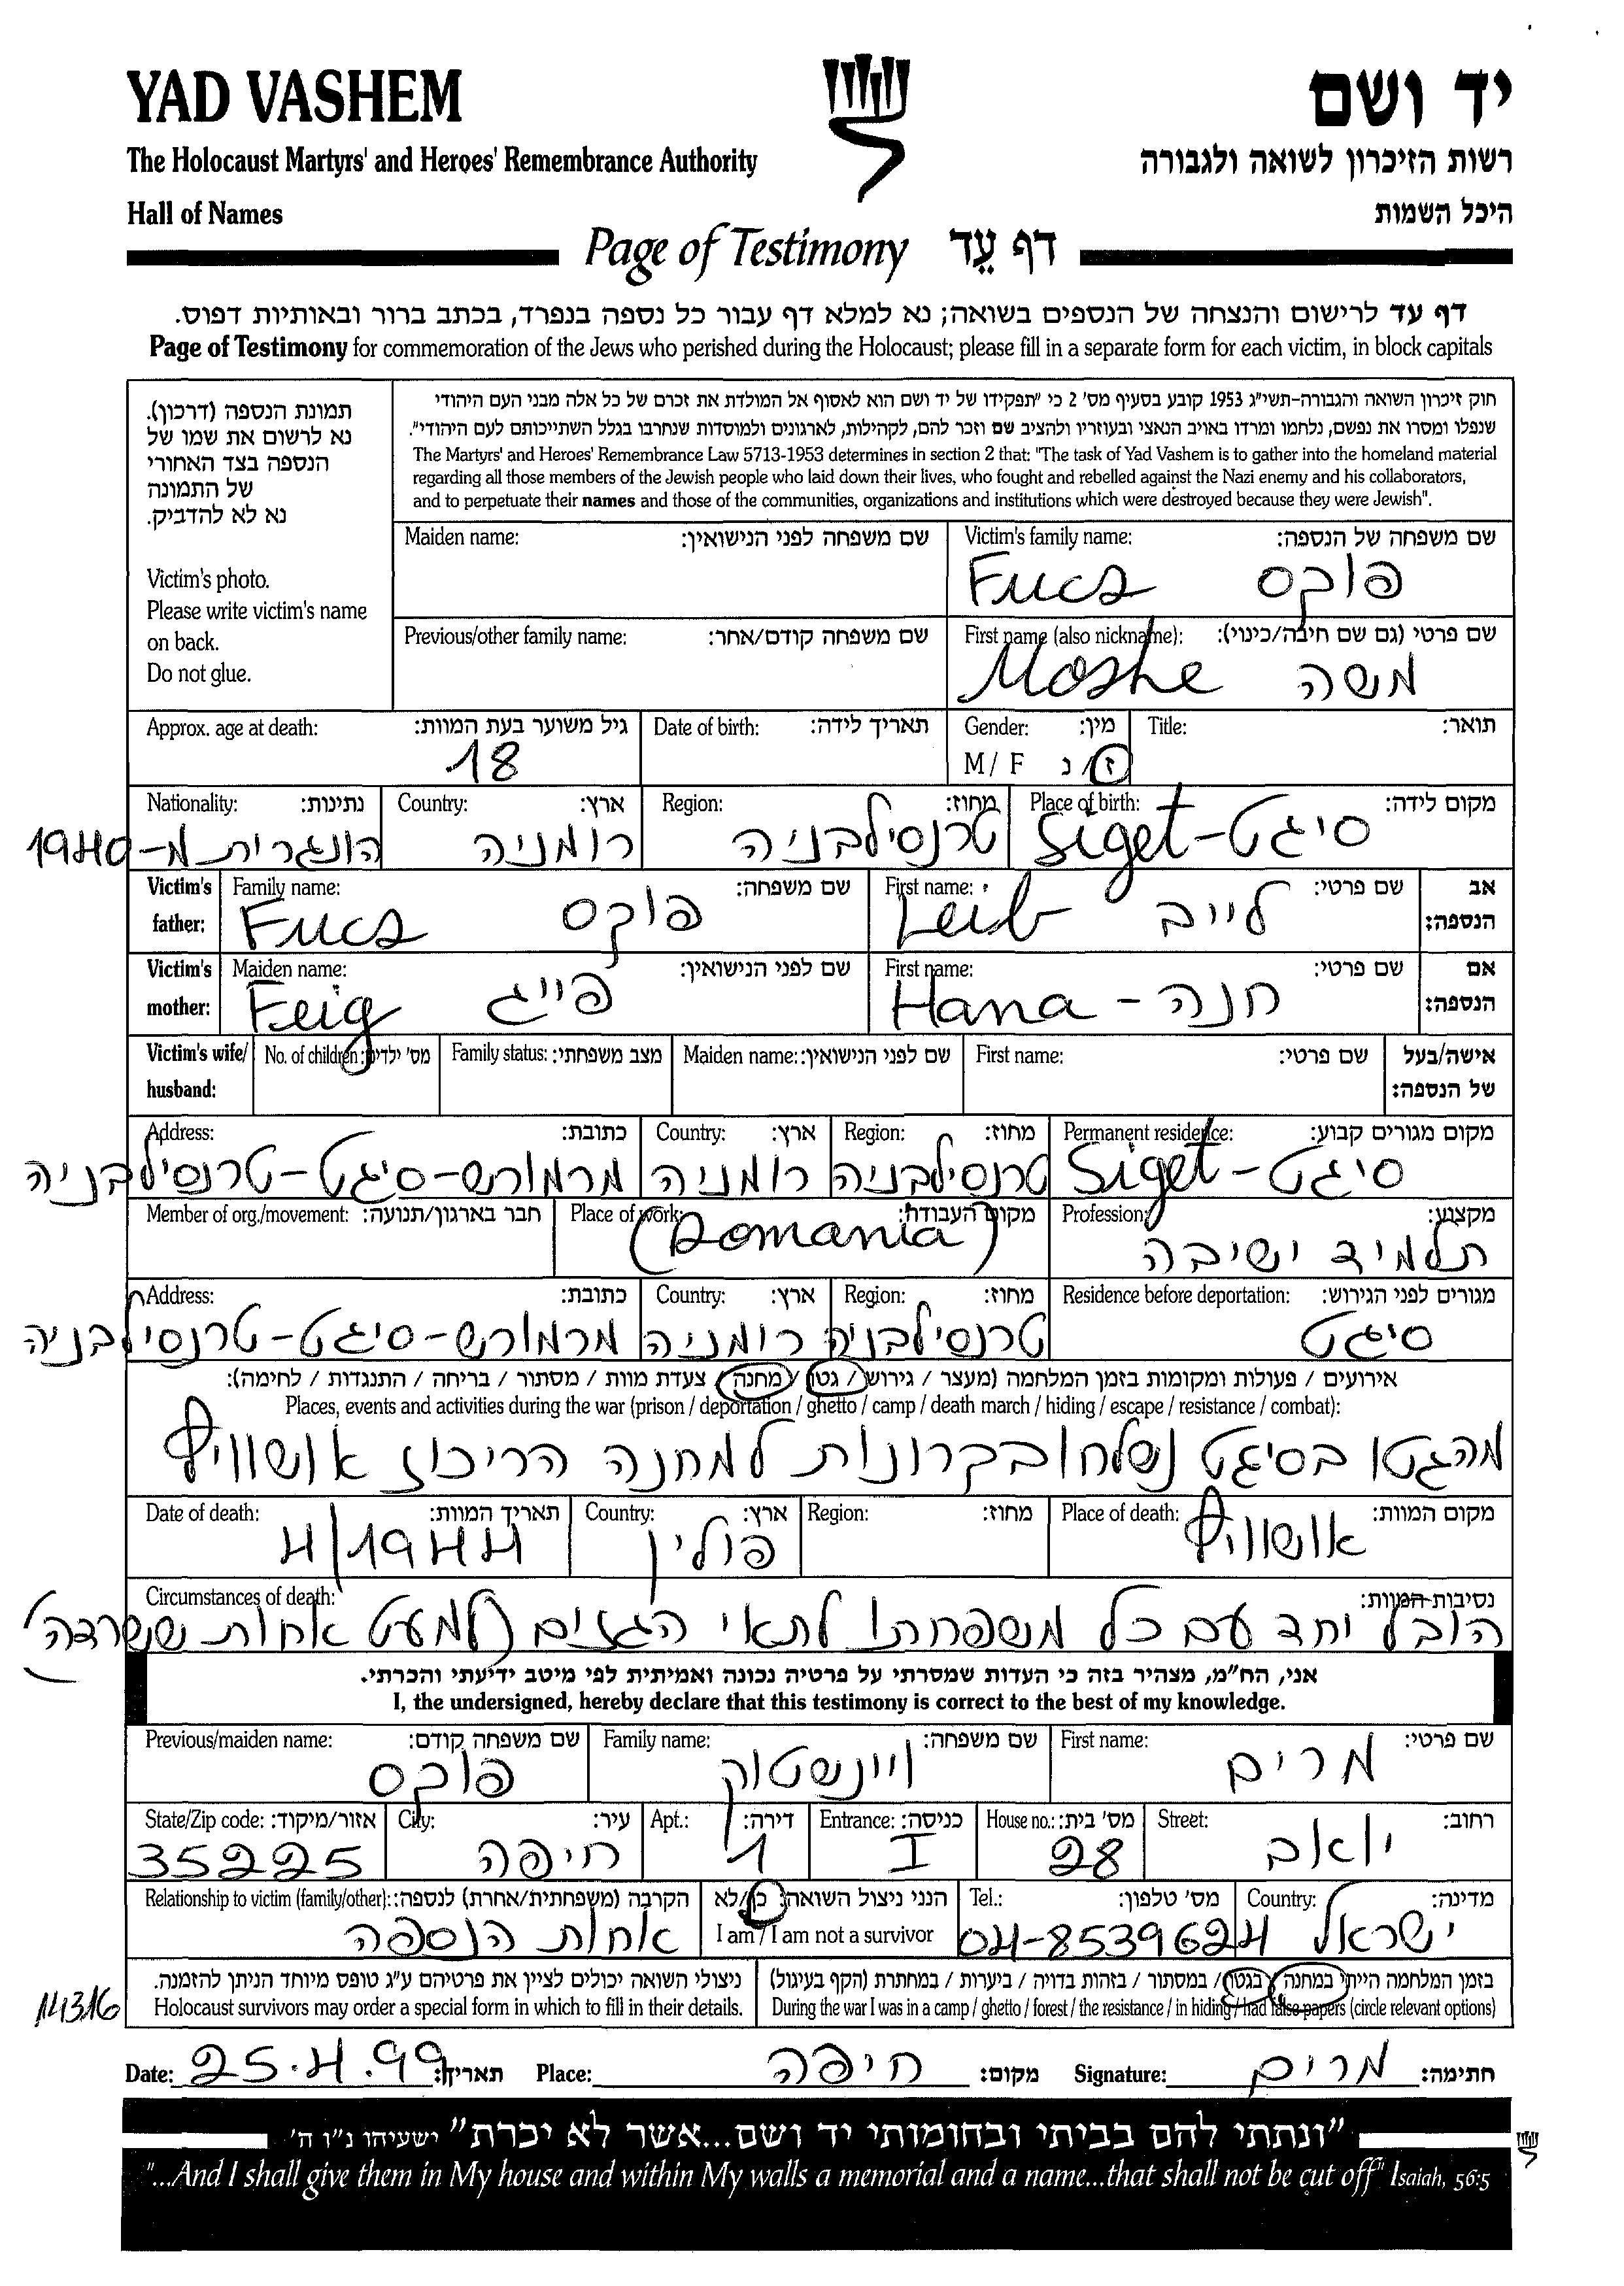 YAD VASHEM
יד ושם
The Holocaust Martyrs' and Heroes' Remembrance Authority
רשות הזיכרון לשואה ולגבורה
Hall of Names
היכל השמות
Page of Testimony דף עֵד
דף עד לרישום והנצחה של הנספים בשואה; נא למלא דף עבור כל נספה בנפרד, בכתב ברור ובאותיות דפוס.
Page of Testimony for commemoration of the Jews who perished during the Holocaust; please fill in a separate form for each victim, in block capitals
תמונת הנספה (דרכון).
נא לרשום את שמו של
הנספה בצד האחורי
של התמונה
נא לא להדביק.
Victim's photo.
Please write victim's name
on back.
Do not glue.
חוק זיכרון השואה והגבורה-תשי"ג 1953 קובע בסעיף מס' 2 כי "תפקידו של יד ושם הוא לאסוף אל המולדת את זכרם של כל אלה מבני העם היהודי
שנפלו ומסרו את נפשם, נלחמו ומרדו באויב הנאצי ובעוזריו ולהציב שם וזכר להם, לקהילות, לארגונים ולמוסדות שנחרבו בגלל השתייכותם לעם היהודי".
The Martyrs' and Heroes' Remembrance Law 5713-1953 determines in section 2 that: "The task of Yad Vashem is to gather into the homeland material
regarding all those members of the Jewish people who laid down their lives, who fought and rebelled against the Nazi enemy and his collaborators,
and to perpetuate their names and those of the communities, organizations and institutions which were destroyed because they were Jewish".
Maiden name: שם משפחה לפני הנישואין: Victim's family name: שם משפחה של הנספה:
Fucs פוקס
Previous/other family name: שם משפחה קודם/אחר: First name (also nickname): שם פרטי (גם שם חיבה/כינוי):
Moshe משה
Approx. age at death: גיל משוער בעת המוות: Date of birth: תאריך לידה: Gender: מין: Title: תואר:
18 M / F ז / נ
Nationality: נתינות: Country: ארץ: Region: מחוז: Place of birth: מקום לידה:
הונגרית מ-1940 רומניה טרנסילבניה Siget-סיגט
Victim's father: Family name: שם משפחה: First name: שם פרטי: אב הנספה:
Fucs פוקס Leib לייב
Victim's mother: Maiden name: שם לפני הנישואין: First name: שם פרטי: אם הנספה:
Feig פייג Hana - חנה
Victim's wife/ husband: No. of children: מס' ילדים: Family status: מצב משפחתי: Maiden name: שם לפני הנישואין: First name: שם פרטי: אישה/בעל של הנספה:
Address: כתובת: Country: ארץ: Region: מחוז: Permanent residence: מקום מגורים קבוע:
מרמורש-סיגט-טרנסילבניה רומניה טרנסילבניה Siget-סיגט
Member of org./movement: חבר בארגון/תנועה: Place of work: מקום העבודה: Profession: מקצוע:
(Romania) תלמיד ישיבה
Address: כתובת: Country: ארץ: Region: מחוז: Residence before deportation: מגורים לפני הגירוש:
מרמורש-סיגט-טרנסילבניה רומניה טרנסילבניה סיגט
אירועים / פעולות ומקומות בזמן המלחמה (מעצר / גירוש / גטו / מחנה / צעדת מוות / מסתור / בריחה / התנגדות / לחימה):
Places, events and activities during the war (prison / deportation / ghetto / camp / death march / hiding / escape / resistance / combat):
מהגטו בסיגט נשלחו בקרונות למחנה הריכוז אושוויץ
Date of death: תאריך המוות: Country: ארץ: Region: מחוז: Place of death: מקום המוות:
4/1944 פולין אושוויץ
Circumstances of death: נסיבות המוות:
הובל יחד עם כל משפחתו לתאי הגזים (למעט אחות ששרדה)
אני, הח"מ, מצהיר בזה כי העדות שמסרתי על פרטיה נכונה ואמיתית לפי מיטב ידיעתי והכרתי.
I, the undersigned, hereby declare that this testimony is correct to the best of my knowledge.
Previous/maiden name: שם משפחה קודם: Family name: שם משפחה: First name: שם פרטי:
פוקס ויינשטוק מרים
State/Zip code: אזור/מיקוד: City: עיר: Apt.: דירה: Entrance: כניסה: House no.: מס' בית: Street: רחוב:
35225 חיפה 1 I 28 יואב
Relationship to victim (family/other): הקרבה (משפחתית/אחרת) לנספה: הנני ניצול השואה: כן/לא Tel.: מס' טלפון: Country: מדינה:
אחות הנספה I am / I am not a survivor 04-8539624 ישראל
ניצולי השואה יכולים לציין את פרטיהם ע"ג טופס מיוחד הניתן להזמנה. בזמן המלחמה הייתי במחנה / בגטו / במסתור / בזהות בדויה / ביערות / במחתרת (הקף בעיגול)
14316 Holocaust survivors may order a special form in which to fill in their details. During the war I was in a camp / ghetto / forest / the resistance / in hiding / had false papers (circle relevant options)
Date: 25.4.99 תאריך: Place: חיפה מקום: Signature: מרים חתימה:
"ונתתי להם בביתי ובחומותי יד ושם...אשר לא יכרת" ישעיהו נ"ו ה'
"...And I shall give them in My house and within My walls a memorial and a name...that shall not be cut off" Isaiah, 56:5